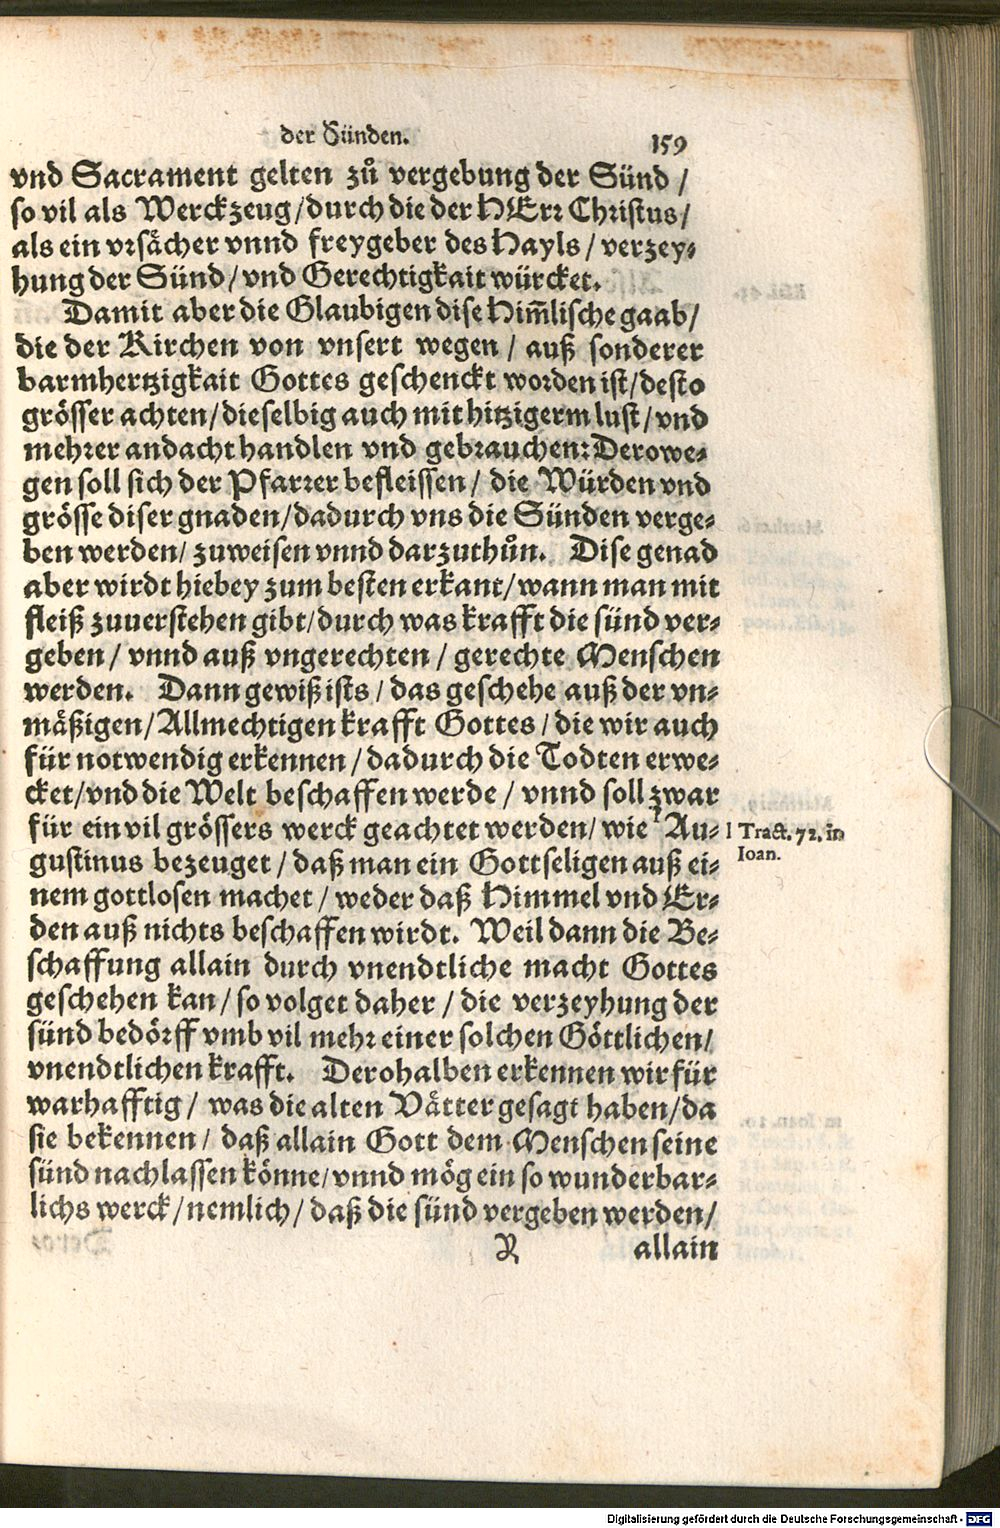 der Sünden. 159
vnd Sacrament gelten zů vergebung der Sünd /
so vil als Werckzeug / durch die der HErr Christus /
als ein vrsächer vnnd freygeber des Hayls / verzey-
hung der Sünd / vnd Gerechtigkait würcket.
Damit aber die Glaubigen dise Him̄lische gaab /
die der Kirchen von vnsert wegen / auß sonderer
barmhertzigkait Gottes geschenckt worden ist / desto
grösser achten / dieselbig auch mit hitzigerm lust / vnd
mehrer andacht handlen vnd gebrauchen: Derowe-
gen soll sich der Pfarrer befleissen / die Würden vnd
grösse diser gnaden / dadurch vns die Sünden verge-
ben werden / zuweisen vnnd darzuthůn. Dise genad
aber wirdt hiebey zum besten erkant / wann man mit
fleiß zuuerstehen gibt / durch was krafft die sünd ver-
geben / vnnd auß vngerechten / gerechte Menschen
werden. Dann gewiß ists / das geschehe auß der vn-
mäßigen / Allmechtigen krafft Gottes / die wir auch
für notwendig erkennen / dadurch die Todten erwe-
cket / vnd die Welt beschaffen werde / vnnd soll zwar
für ein vil grössers werck geachtet werden / wie l Au-
gustinus bezeuget / daß man ein Gottseligen auß ei-
nem gottlosen machet / weder daß Himmel vnd Er-
den auß nichts beschaffen wirdt. Weil dann die Be-
schaffung allain durch vnendtliche macht Gottes
geschehen kan / so volget daher / die verzeyhung der
sünd bedörff vmb vil mehr einer solchen Göttlichen /
vnendtlichen krafft. Derohalben erkennen wir für
warhafftig / was die alten Vätter gesagt haben / da
sie bekennen / daß allain Gott dem Menschen seine
sünd nachlassen könne / vnnd mög ein so wunderbar-
lichs werck / nemlich / daß die sünd vergeben werden /
R allain
l Tract. 72. in
Ioan.
Digitalisierung gefördert durch die Deutsche Forschungsgemeinschaft - DFG